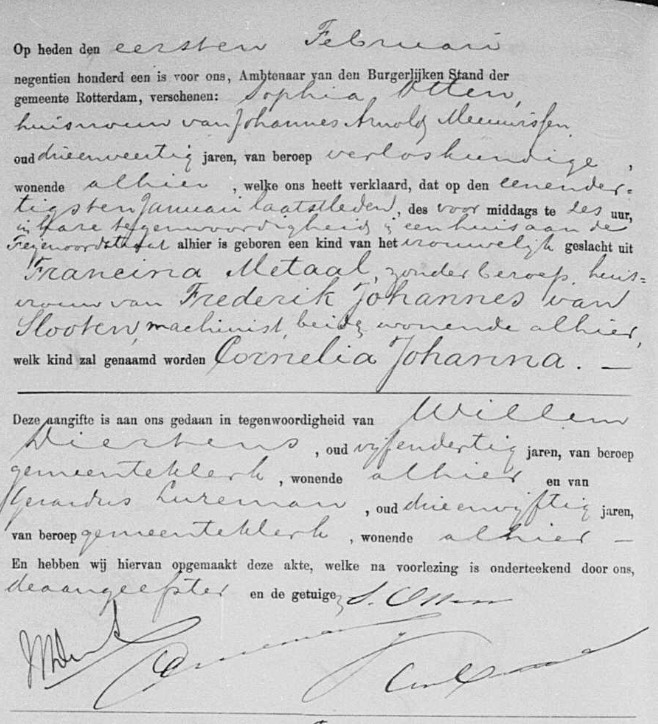 Op heden den eersten Februari
negentien honderd een is voor ons, Ambtenaar van den Burgerlijken Stand der
gemeente Rotterdam, verschenen: Sophia Otten,
huisvrouw van Johannes Arnolds Meeuwissen
oud drieenveertig jaren, van beroep verloskundige,
wonende alhier, welke ons heeft verklaard, dat op den eenender=
tigsten Januari laatstleden, des voor middags te zes uur,
in hare tegenwoordigheid in een huis aan de
Feijenoordstraat alhier is geboren een kind van het vrouwelijk geslacht uit
Francina Metaal, zonder beroep, huis=
vrouw van Frederik Johannes van
Slooten, machinist, beide wonende alhier,
welk kind zal genaamd worden Cornelia Johanna. —
Deze aangifte is aan ons gedaan in tegenwoordigheid van Willem
, oud vijfendertig jaren, van beroep
gemeenteklerk, wonende alhier en van
Gerardus Lureman, oud drieenvijftig jaren,
van beroep gemeenteklerk, wonende alhier —
En hebben wij hiervan opgemaakt deze akte, welke na voorlezing is onderteekend door ons,
de aangeefster en de getuigen S. Otten